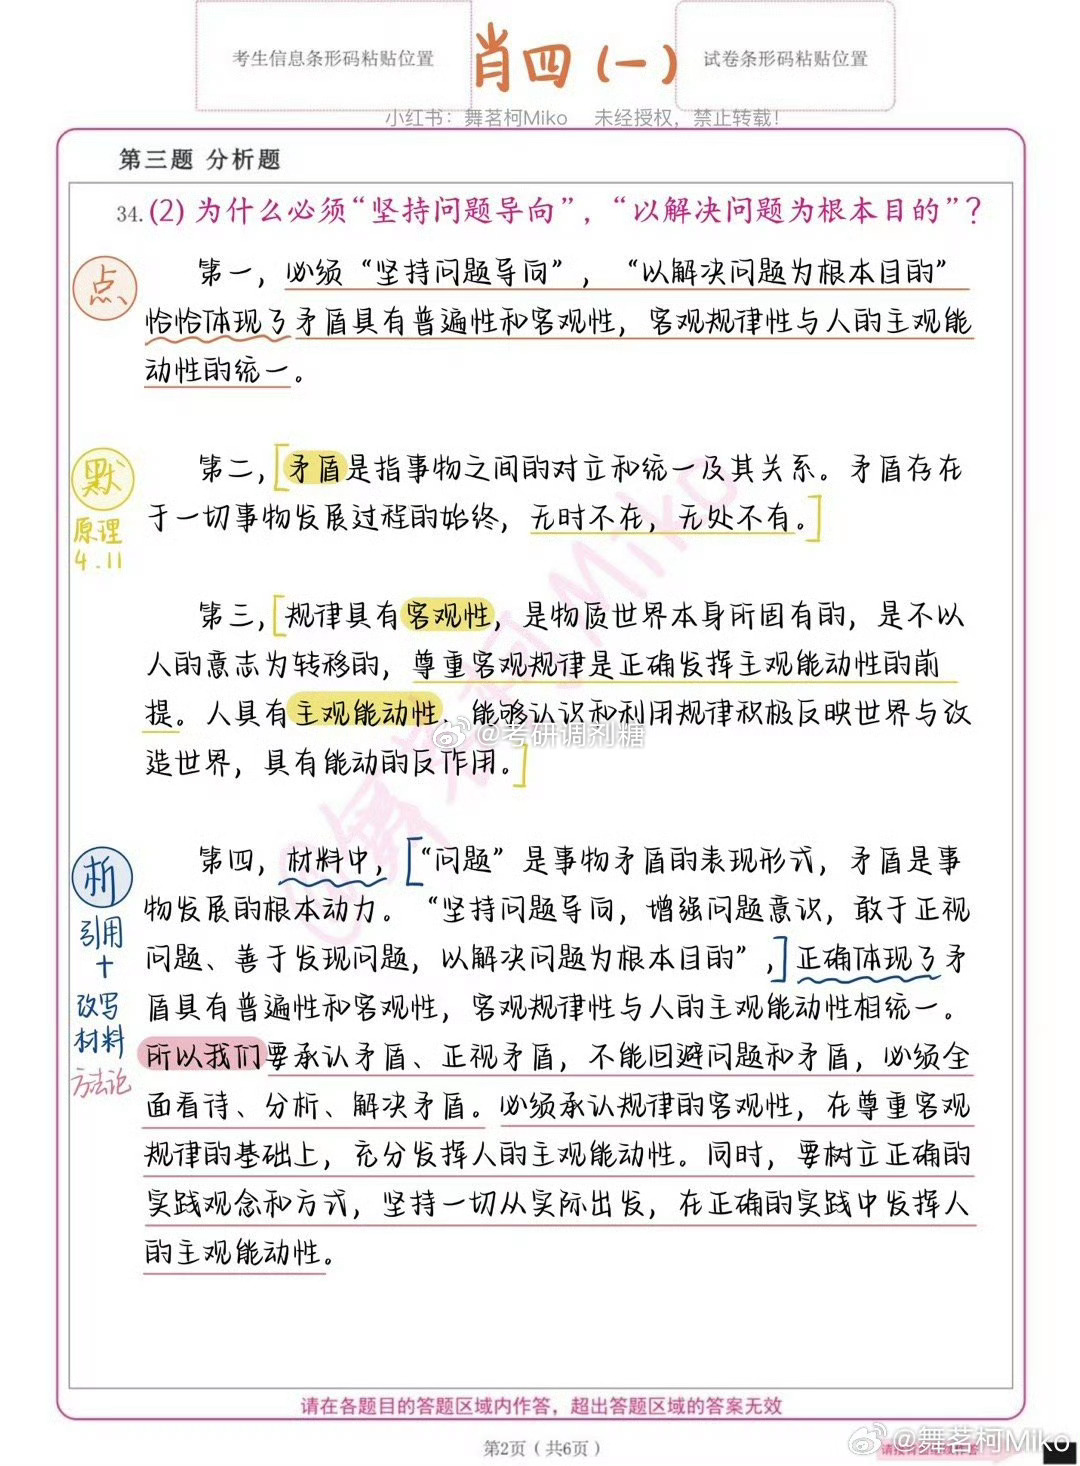 考生信息条形码粘贴位置
肖四（一）
试卷条形码粘贴位置
小红书：舞茗柯Miko 未经授权，禁止转载！
第三题 分析题
34.(2) 为什么必须“坚持问题导向”，“以解决问题为根本目的”？
点
第一，必须“坚持问题导向”，“以解决问题为根本目的”
恰恰体现了矛盾具有普遍性和客观性，客观规律性与人的主观能
动性的统一。
默
原理
4.11
第二，[矛盾是指事物之间的对立和统一及其关系。矛盾存在
于一切事物发展过程的始终，无时不在，无处不有。]
第三，[规律具有客观性，是物质世界本身所固有的，是不以
人的意志为转移的，尊重客观规律是正确发挥主观能动性的前
提。人具有主观能动性，能够认识和利用规律积极反映世界与改
造世界，具有能动的反作用。]
@考研调剂糖
@舞茗柯Miko
析
引用
+
改写
材料
方法论
第四，材料中，[“问题”是事物矛盾的表现形式，矛盾是事
物发展的根本动力。“坚持问题导向，增强问题意识，敢于正视
问题、善于发现问题，以解决问题为根本目的”，]正确体现了矛
盾具有普遍性和客观性，客观规律性与人的主观能动性相统一。
所以我们要承认矛盾、正视矛盾，不能回避问题和矛盾，必须全
面看待、分析、解决矛盾。必须承认规律的客观性，在尊重客观
规律的基础上，充分发挥人的主观能动性。同时，要树立正确的
实践观念和方式，坚持一切从实际出发，在正确的实践中发挥人
的主观能动性。
请在各题目的答题区域内作答，超出答题区域的答案无效
第2页（共6页）
@舞茗柯Miko